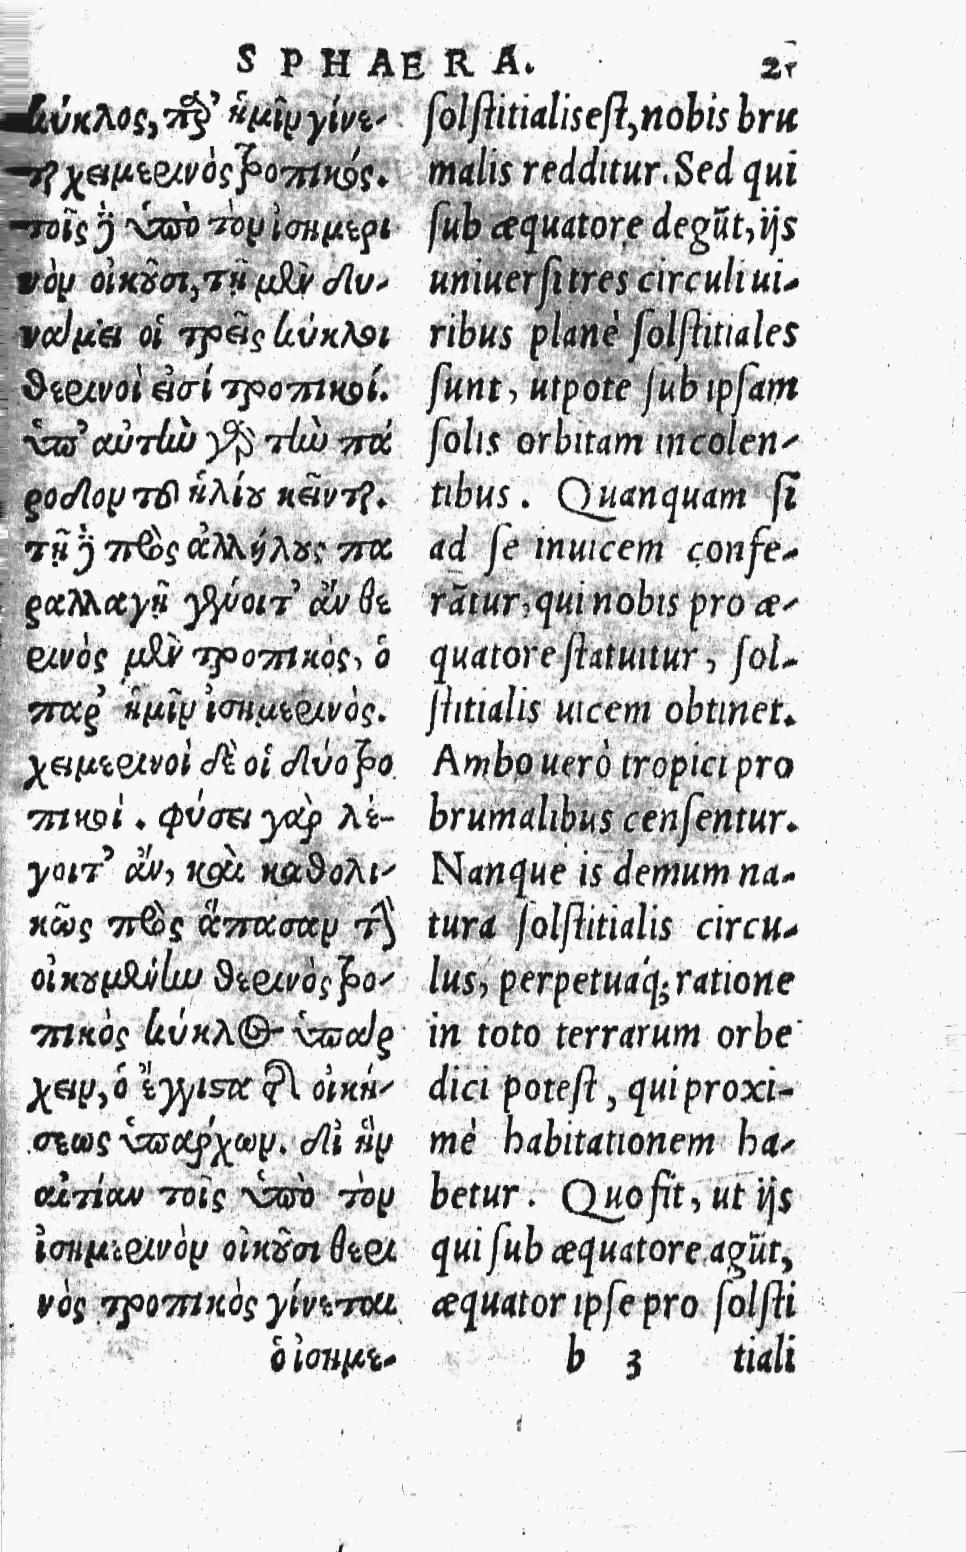 SPHAERA. 21
κύκλος, παρ' ἡμῖν γίνε-
ται χειμερινὸς τροπικός.
τοῖς δὲ ὑπὸ τὸν ἰσημερι
νὸν οἰκοῦσι, τῇ μὲν δυ-
νάμει οἱ τρεῖς κύκλοι
θερινοὶ εἰσί τροπικοί.
ὑπ' αὐτὴν γὰρ τὴν πά
ροδον τοῦ ἡλίου κεῖνται.
τῇ δὲ πρὸς ἀλλήλους πα
ραλλαγῇ γένοιτ' ἂν θε
ρινὸς μὲν τροπικὸς, ὁ
παρ' ἡμῖν ἰσημερινὸς.
χειμερινοὶ δὲ οἱ δύο τρο
πικοί. φύσει γὰρ λέ-
γοιτ' ἂν, καὶ καθολι-
κῶς πρὸς ἅπασαν τὴν
οἰκουμένην θερινὸς τρο-
πικὸς κύκλος ὑπάρ
χειν, ὁ ἔγγιστα τῆς οἰκή-
σεως ὑπάρχων. δι' ἣν
αἰτίαν τοῖς ὑπὸ τὸν
ἰσημερινὸν οἰκοῦσι θερι
νὸς τροπικὸς γίνεται
ὁ ἰσημε-
solstitialis est, nobis bru
malis redditur. Sed qui
sub æquatore degūt, ijs
uniuersi tres circuli ui-
ribus planè solstitiales
sunt, utpote sub ipsam
solis orbitam incolen-
tibus. Quanquam si
ad se inuicem confe-
rātur, qui nobis pro æ-
quatore statuitur, sol-
stitialis uicem obtinet.
Ambo uerò tropici pro
brumalibus censentur.
Nanque is demum na-
tura solstitialis circu-
lus, perpetuáq; ratione
in toto terrarum orbe
dici potest, qui proxi-
mè habitationem ha-
betur. Quo fit, ut ijs
qui sub æquatore agūt,
æquator ipse pro solsti
b 3 tiali